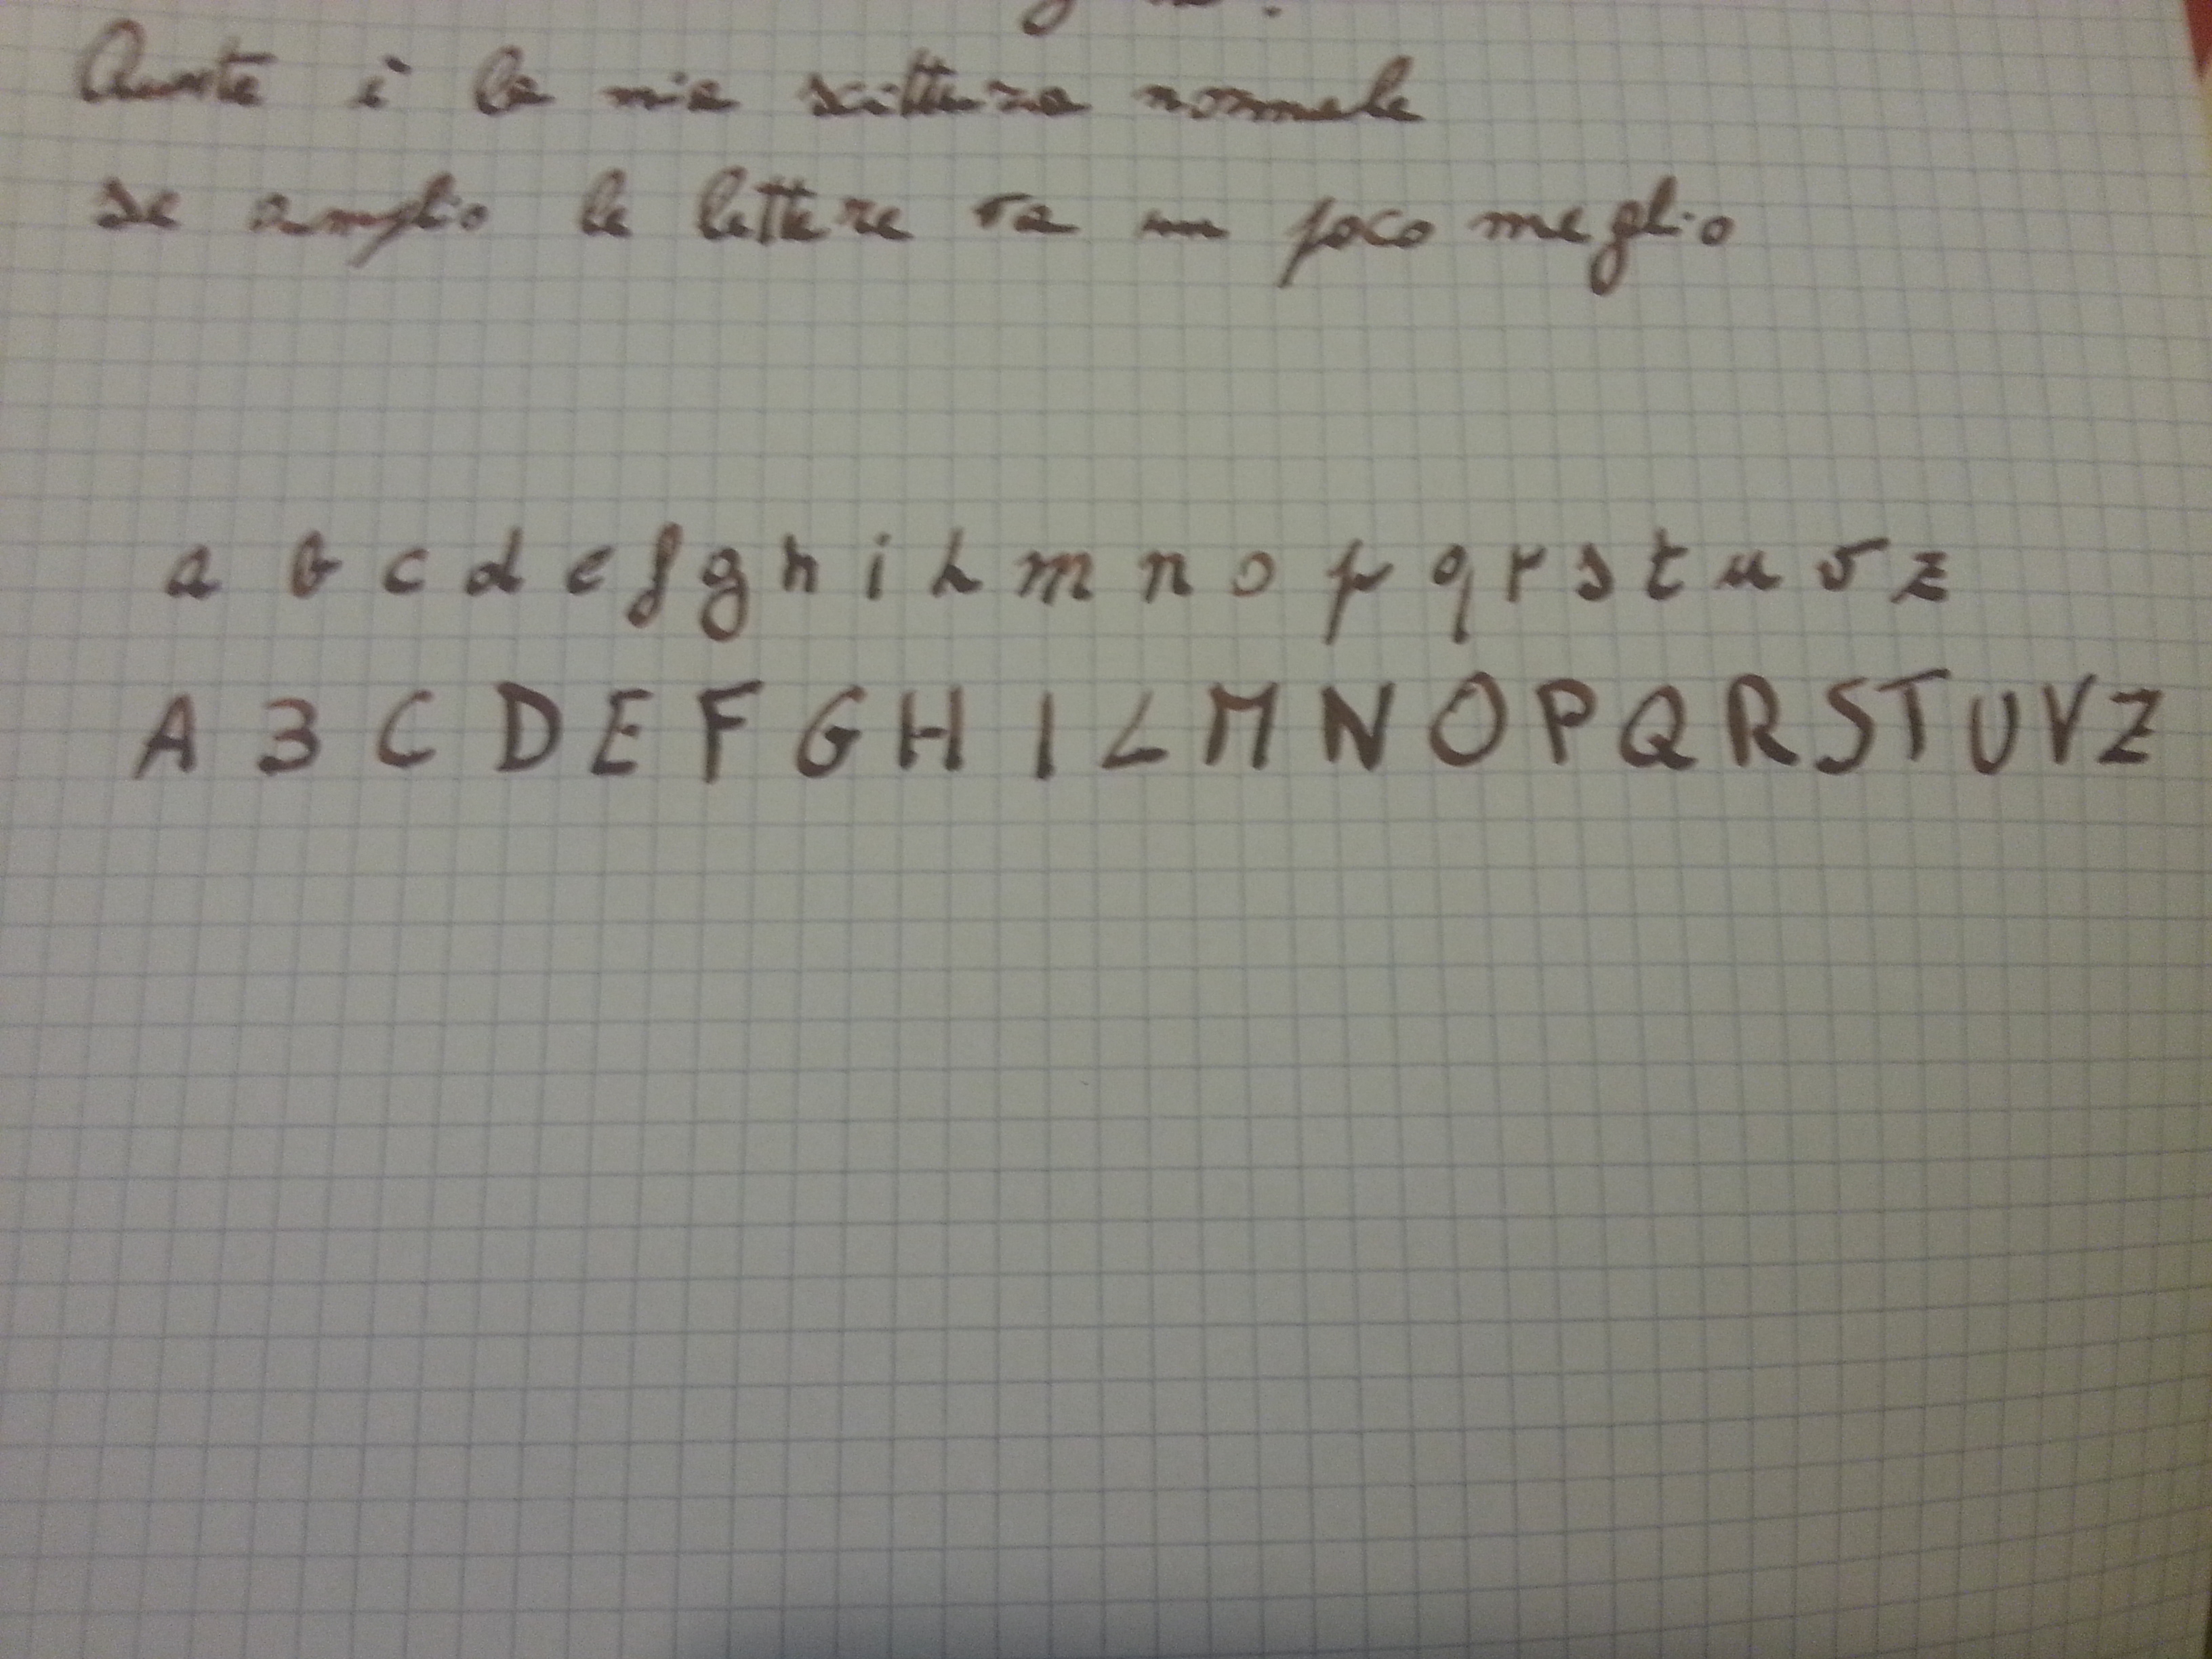 Questa è la mia scrittura normale
se amplio le lettere va un poco meglio
a b c d e f g h i l m n o p q r s t u v z
A B C D E F G H I L M N O P Q R S T U V Z